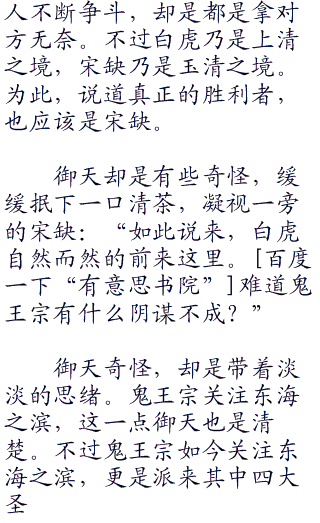 人不断争斗，却是都是拿对
方无奈。不过白虎乃是上清
之境，宋缺乃是玉清之境。
为此，说道真正的胜利者，
也应该是宋缺。
御天却是有些奇怪，缓
缓抿下一口清茶，凝视一旁
的宋缺：“如此说来，白虎
自然而然的前来这里。[百度
一下“有意思书院”]难道鬼
王宗有什么阴谋不成？”
御天奇怪，却是带着淡
淡的思绪。鬼王宗关注东海
之滨，这一点御天也是清
楚。不过鬼王宗如今关注东
海之滨，更是派来其中四大
圣